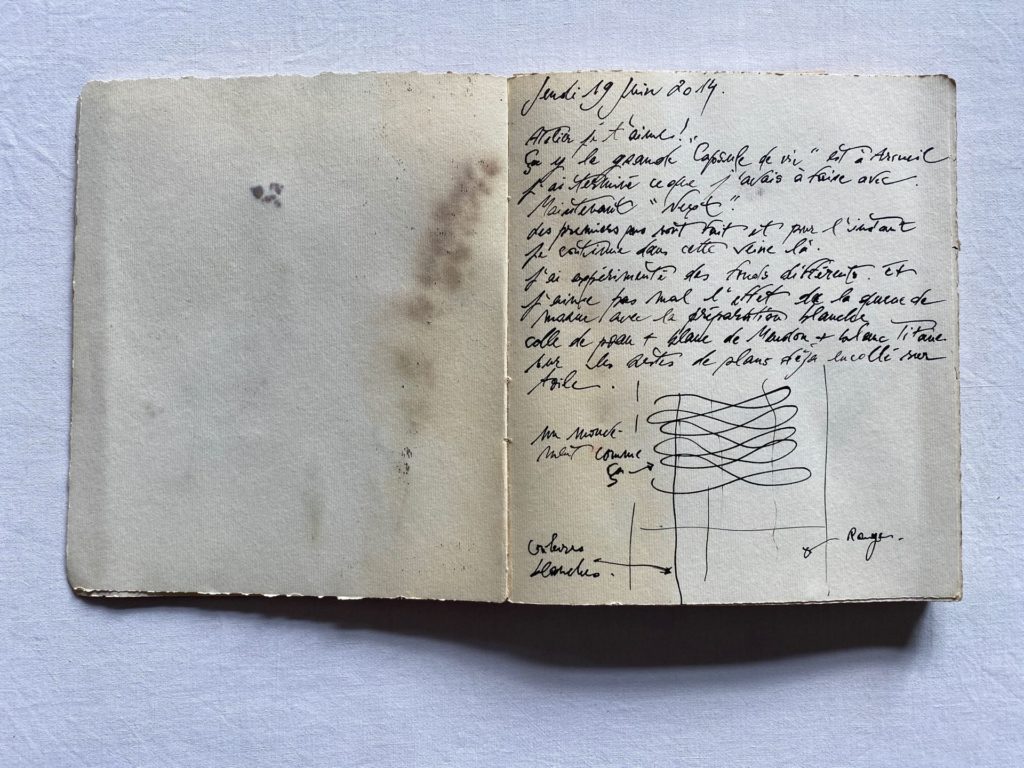 Jeudi 19 Juin 2014.
Atelier je t'aime!
ça y la grande "Capsule de vie" est à Arcueil
j'ai terminé ce que j'avais à faire avec.
Maintenant "Next".
des premiers pas sont fait et pour l'instant
je continue dans cette veine là.
j'ai expérimenté des fonds différents. Et
j'aime pas mal l'effet de la queue de
morue avec la préparation blanche
colle de peau + blanc de Meudon + blanc Titane
sur les restes de plans déjà encollé sur
toile.
un mouve-
ment comme
ça
Rouge.
Coulures
blanches.